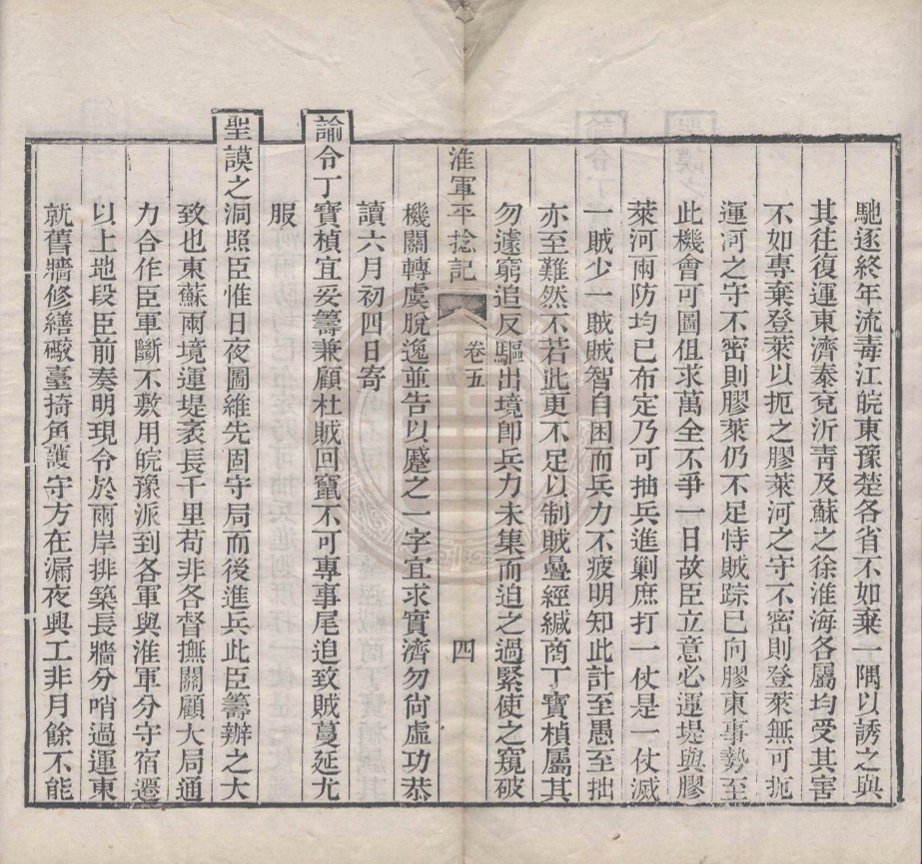 馳逐終年流毒江皖東豫楚各省不如棄一隅以誘之與
其往復運東濟泰兗沂青及蘇之徐淮海各屬均受其害
不如專棄登萊以扼之膠萊河之守不密則登萊無可扼
運河之守不密則膠萊仍不足恃賊踪已向膠東事勢至
此機會可圖但求萬全不爭一日故臣立意必運堤與膠
萊河兩防均已布定乃可抽兵進剿庶打一仗是一仗滅
一賊少一賊賊智自困而兵力不疲明知此計至愚至拙
亦至難然不若此更不足以制賊疊經緘商丁寶楨屬其
勿遽窮追反驅出境卽兵力未集而迫之過緊使之窺破
淮軍平捻記 卷五 四
機關轉虞脫逸並告以蹙之一字宜求實濟勿尙虛功恭
讀六月初四日寄
諭令丁寶楨宜妥籌兼顧杜賊回竄不可專事尾追致賊蔓延尤
服
聖謨之洞照臣惟日夜圖維先固守局而後進兵此臣籌辦之大
致也東蘇兩境運堤袤長千里苟非各督撫關顧大局通
力合作臣軍斷不敷用皖豫派到各軍與淮軍分守宿遷
以上地段臣前奏明現令於兩岸排築長牆分哨過運東
就舊牆修繕礮臺掎角護守方在漏夜興工非月餘不能